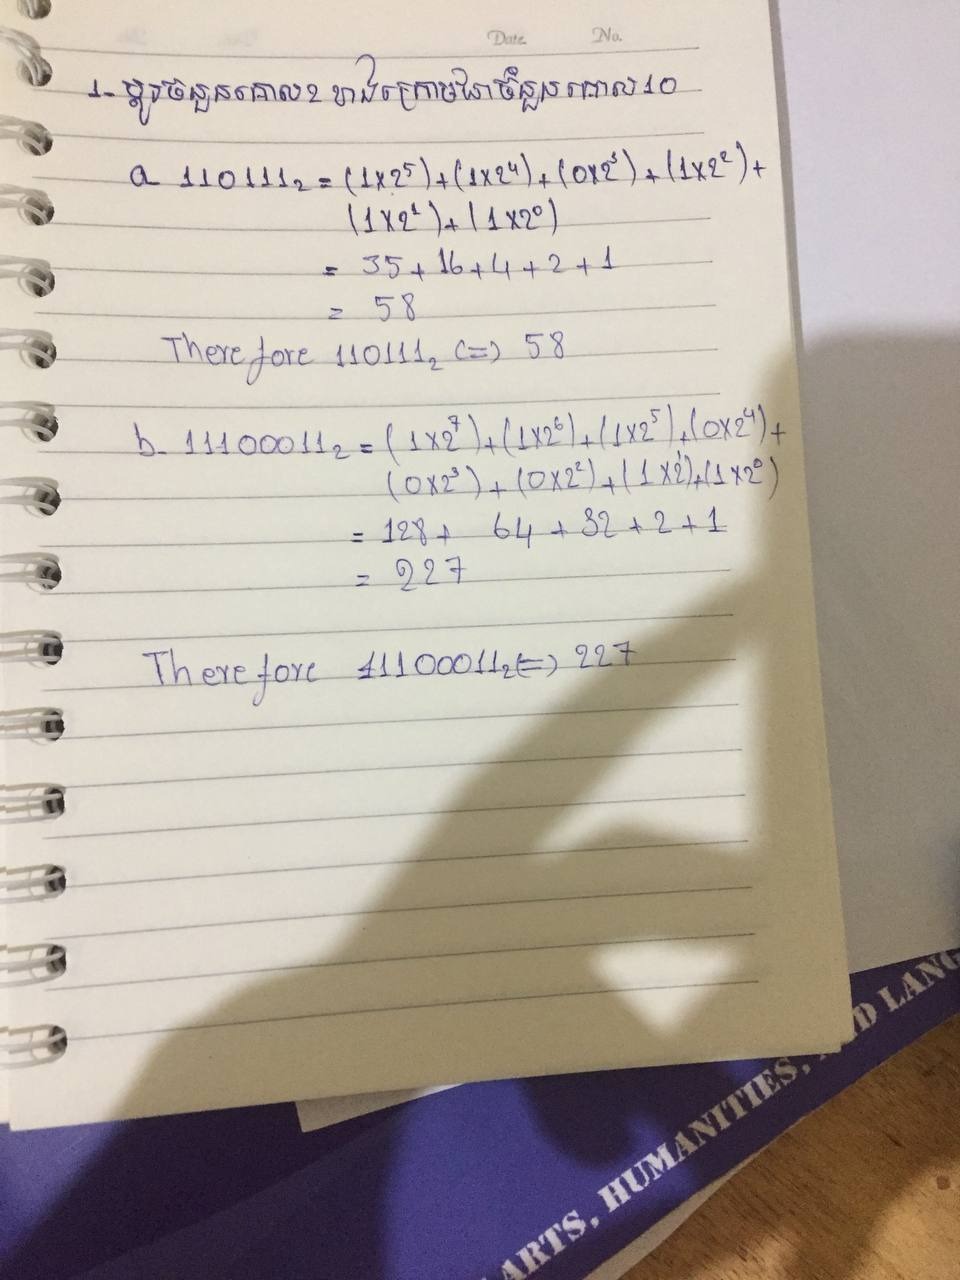 Date No.
1- ប្តូរចំនួនគោល 2 ខាងក្រោមជាចំនួនគោល 10
a 110111₂ = (1x2⁵)+(1x2⁴)+(0x2³)+(1x2²)+
(1x2¹)+(1x2⁰)
= 35+16+4+2+1
= 58
Therefore 110111₂ <=> 58
b. 11100011₂ = (1x2⁷)+(1x2⁶)+(1x2⁵)+(0x2⁴)+
(0x2³)+(0x2²)+(1x2¹)+(1x2⁰)
= 128+ 64+32+2+1
= 227
Therefore 11100011₂ <=> 227
ARTS, HUMANITIES, AND LANG